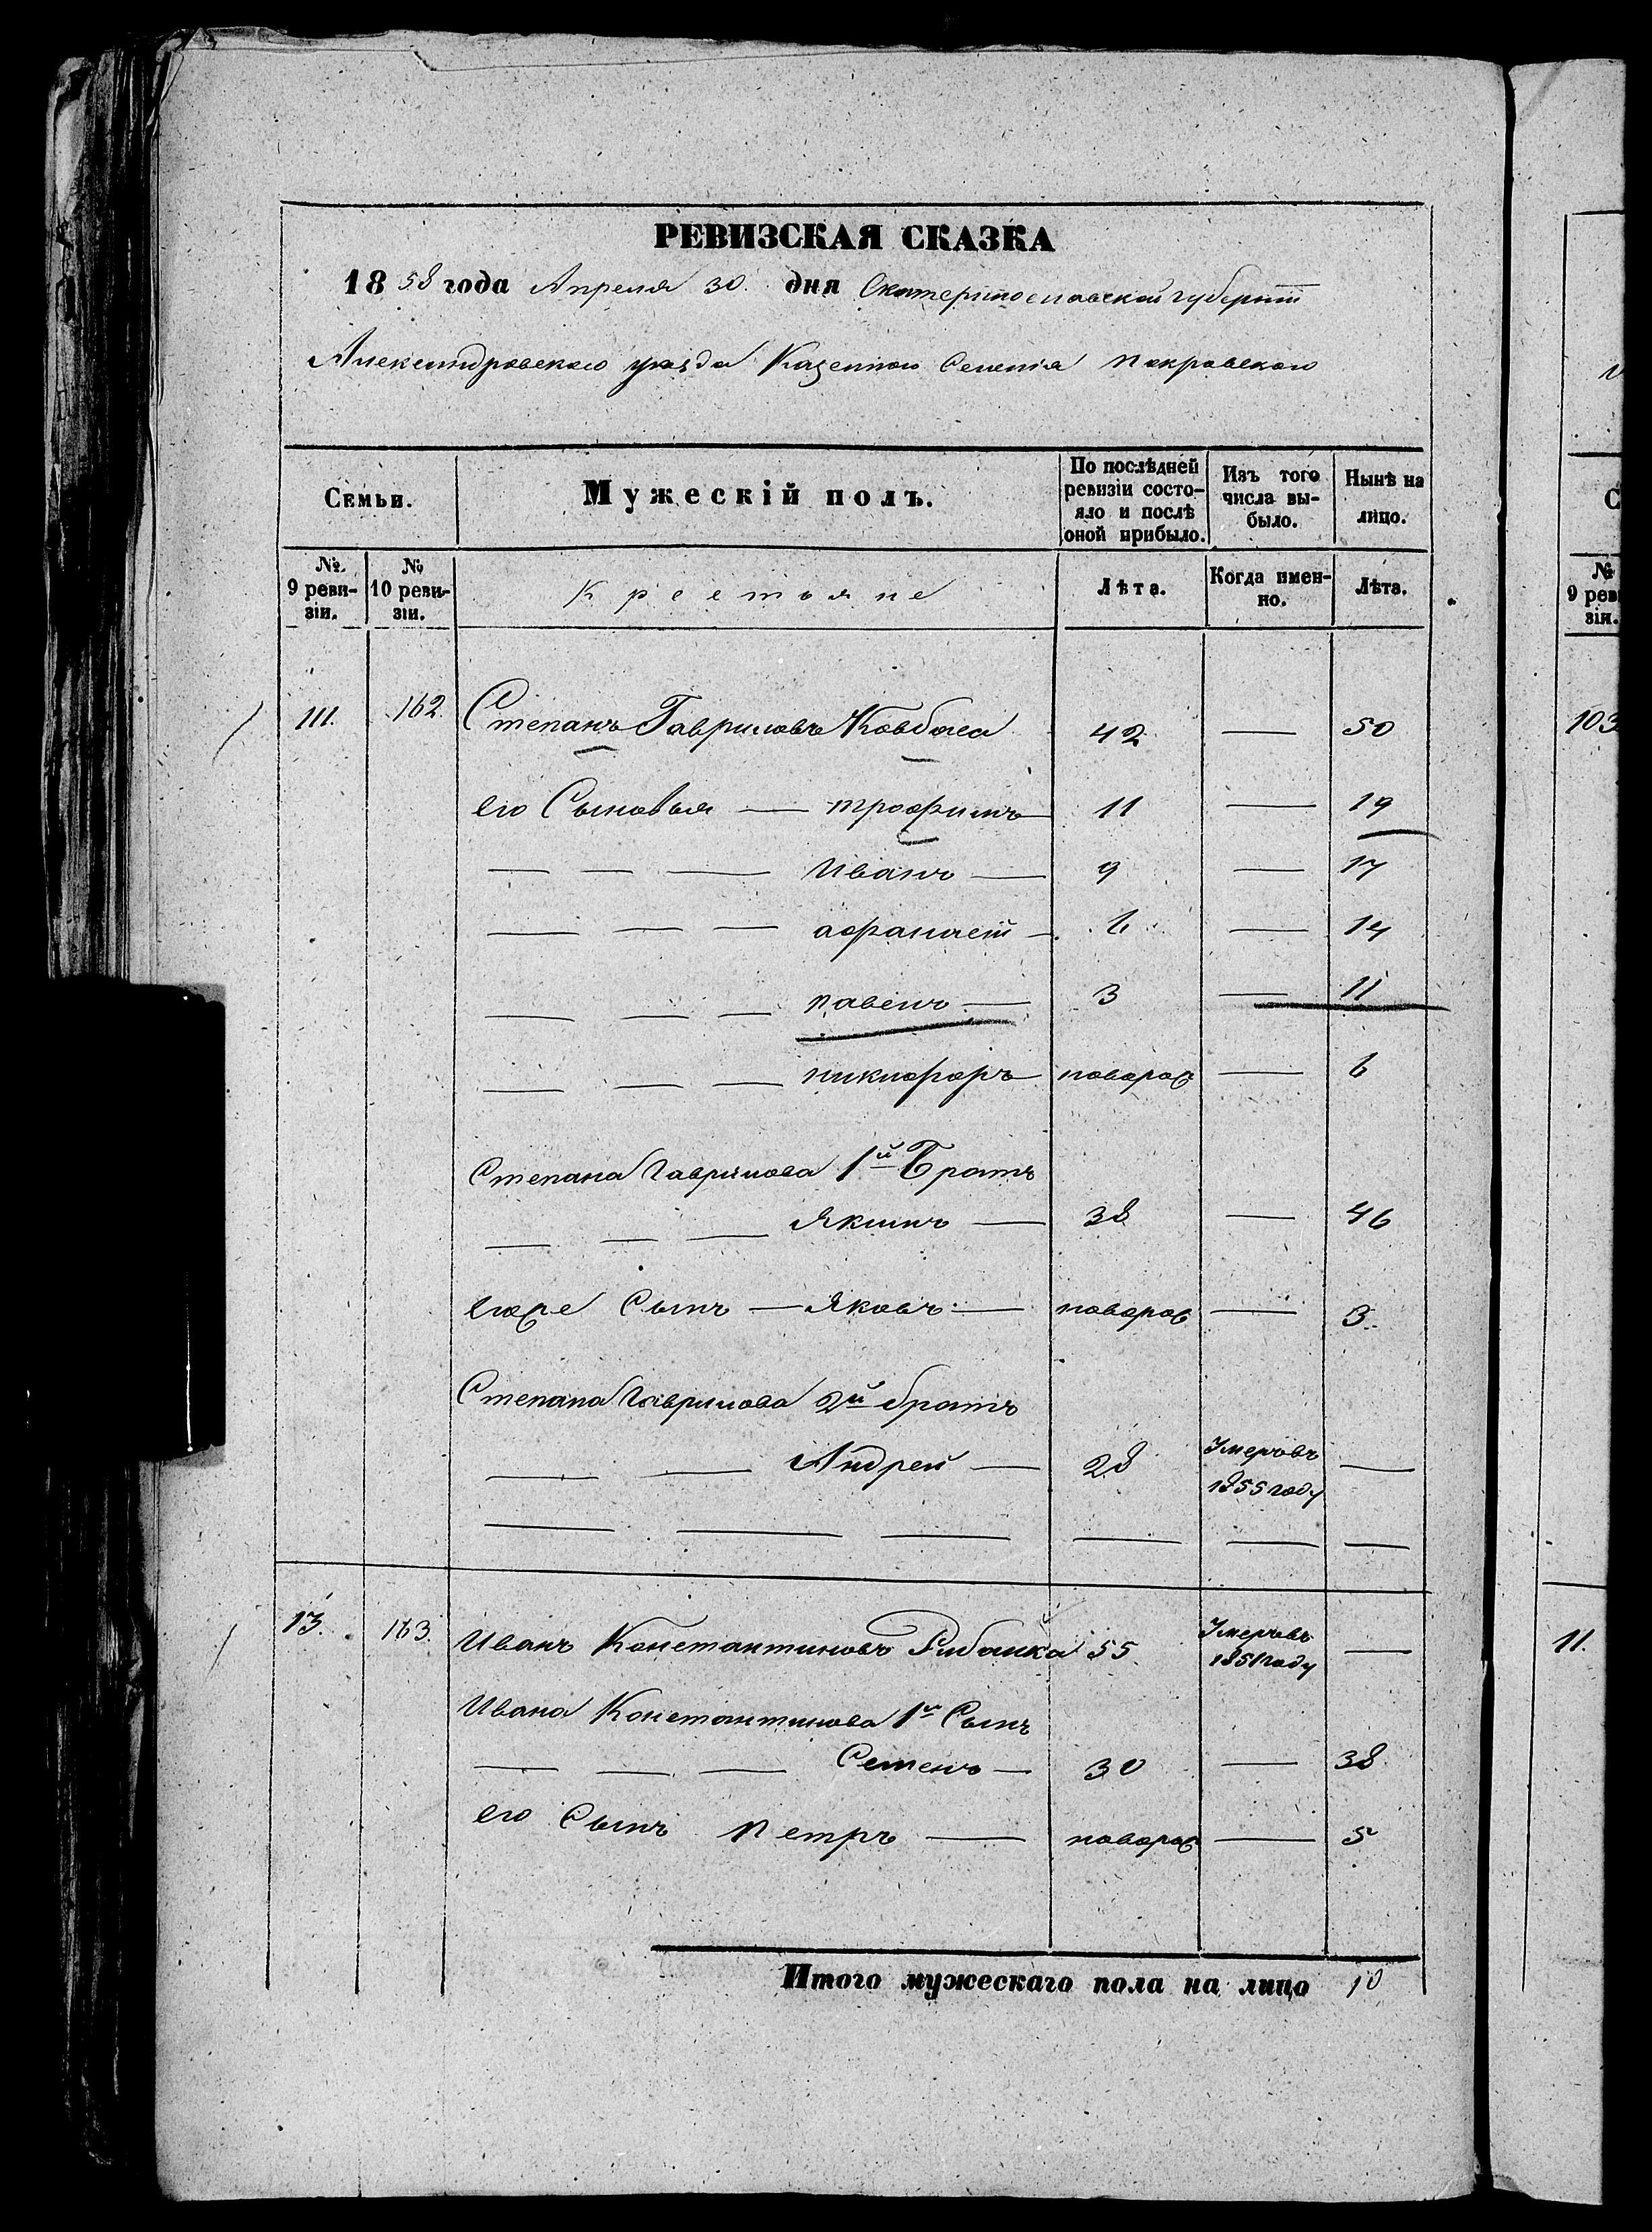 РЕВИЗСКАЯ СКАЗКА
1858 года Апреля 30 дня Екатеринославской губерніи
Александровского уезда Казенного Селенія Покровского
Семьи.
Мужескій полъ.
По послѣдней ревизіи состо-
яло и послѣ
оной прибыло.
Изъ того
числа вы-
было.
Нынѣ на
лицо.
№
9 реви-
зіи.
№
10 реви-
зіи.
Крестьяне
Лѣта.
Когда имен-
но.
Лѣта.
111. 162. Степанъ Гавриловъ Ковбаса 42 — 50
его Сыновья — трофимъ — 11 — 19
— — — Иванъ — 9 — 17
— — — афанасей — 6 — 14
— — — павелъ — 3 — 11
— — — никифоръ новорож — 6
Степана Гаврилова 1й Братъ
— — — Якимъ — 38 — 46
егоже Сынъ — Яковъ — новорож — 3.
Степана Гаврилова 2й братъ
— — Андрей — 28 Умеръ въ 1855 году —
— — — — — —
13. 163. Иванъ Константиновъ 55 Умеръ въ 1851 году —
Ивана Константинова 1й Сынъ
— — — Семенъ — 30 — 38
его Сынъ Петръ — новорож — 5
Итого мужескаго пола на лицо 10
№
9 реви
зіи.
103
11.